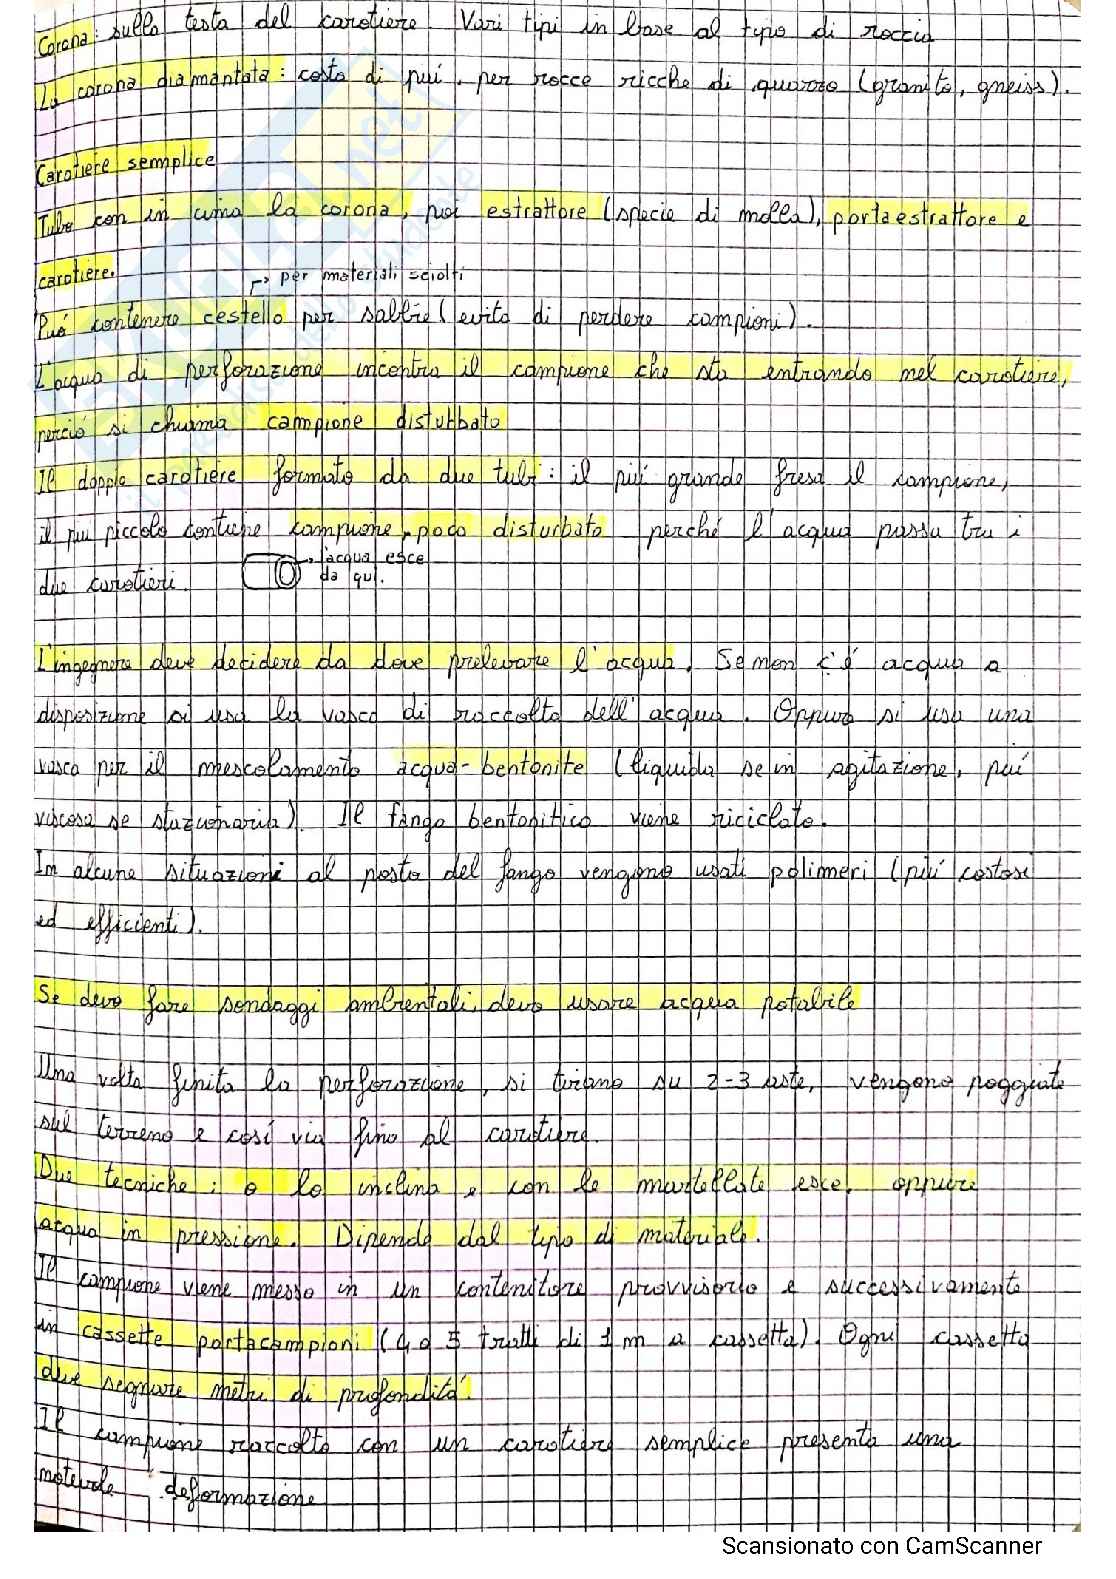 Corona: sulla testa del carotiere. Vari tipi in base al tipo di roccia
La corona diamantata: costa di puí, per rocce ricche di quarzo (granito, gneiss).
Carotiere semplice
Tubo con in cima la corona, poi estrattore (specie di molla), portaestrattore e
carotiere.
→ per materiali sciolti
Puó contenere cestello per sabbie (evita di perdere campioni).
L'acqua di perforazione incontra il campione che sta entrando nel carotiere,
perció si chiama campione disturbato
Il doppio carotiere formato da due tubi: il piú grande fresa il campione,
il piu piccolo contiene campione poco disturbato perché l'acqua passa tra i
due carotieri.
→ acqua esce
da qui.
L'ingegnere deve decidere da dove prelevare l'acqua. Se non c'é acqua a
disposizione si usa la vasca di raccolta dell'acqua. Oppure si usa una
vasca per il mescolamento acqua-bentonite (liquida se in agitazione, piú
viscosa se stazionaria). Il fango bentonitico viene riciclato.
In alcune situazioni al posto del fango vengono usati polimeri (piú costosi
ed efficienti).
Se devo fare sondaggi ambientali, devo usare acqua potabile
Una volta finita la perforazione, si tirano su 2-3 aste, vengono poggiate
sul terreno e cosí via fino al carotiere.
Due tecniche: o lo inclina e con le martellate esce, oppure
acqua in pressione. Dipende dal tipo di materiale.
Il campione viene messo in un contenitore provvisorio e successivamente
in cassette portacampioni (4 o 5 tratti di 1 m a cassetta). Ogni cassetta
deve segnare metri di profonditá.
Il campione raccolto con un carotiere semplice presenta una
notevole deformazione
Scansionato con CamScanner